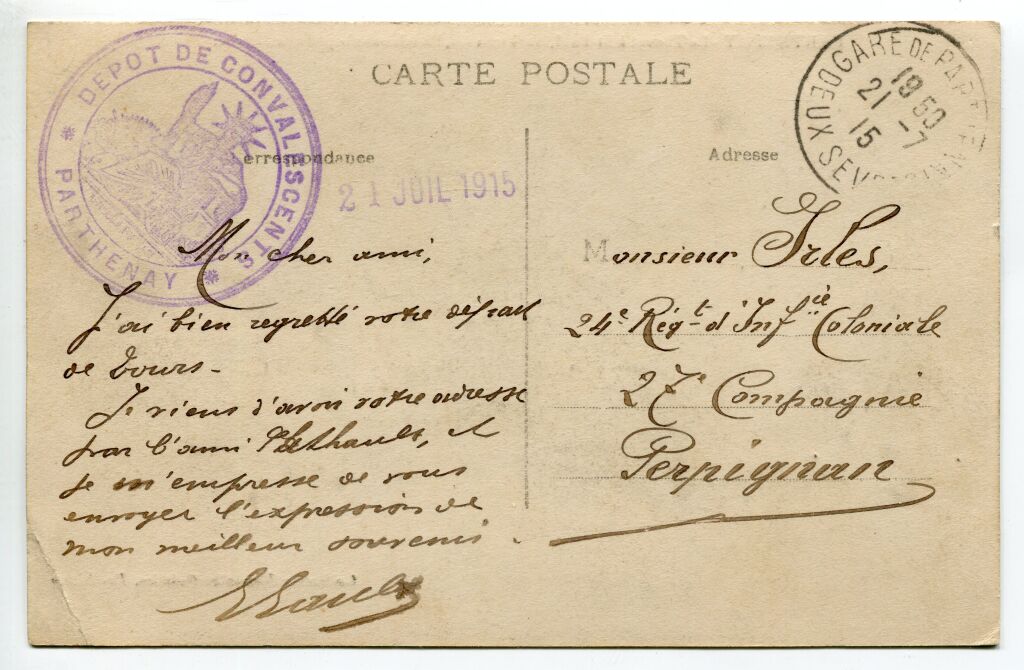 CARTE POSTALE
DEPOT DE CONVALESCENTS
* PARTHENAY *
Correspondance
21 JUIL 1915
Mon cher ami,
J'ai bien regretté votre départ
de Tours -
Je viens d'avoir votre adresse
par l'ami et
je m'empresse de vous
envoyer l'expression de
mon meilleur souvenir.
Adresse
GARE DE PARTHENAY
19 50
21 - 7
15
DEUX SEVRES
Monsieur Irles,
24e Régt d'Infie Coloniale
27e Compagnie
Perpignan